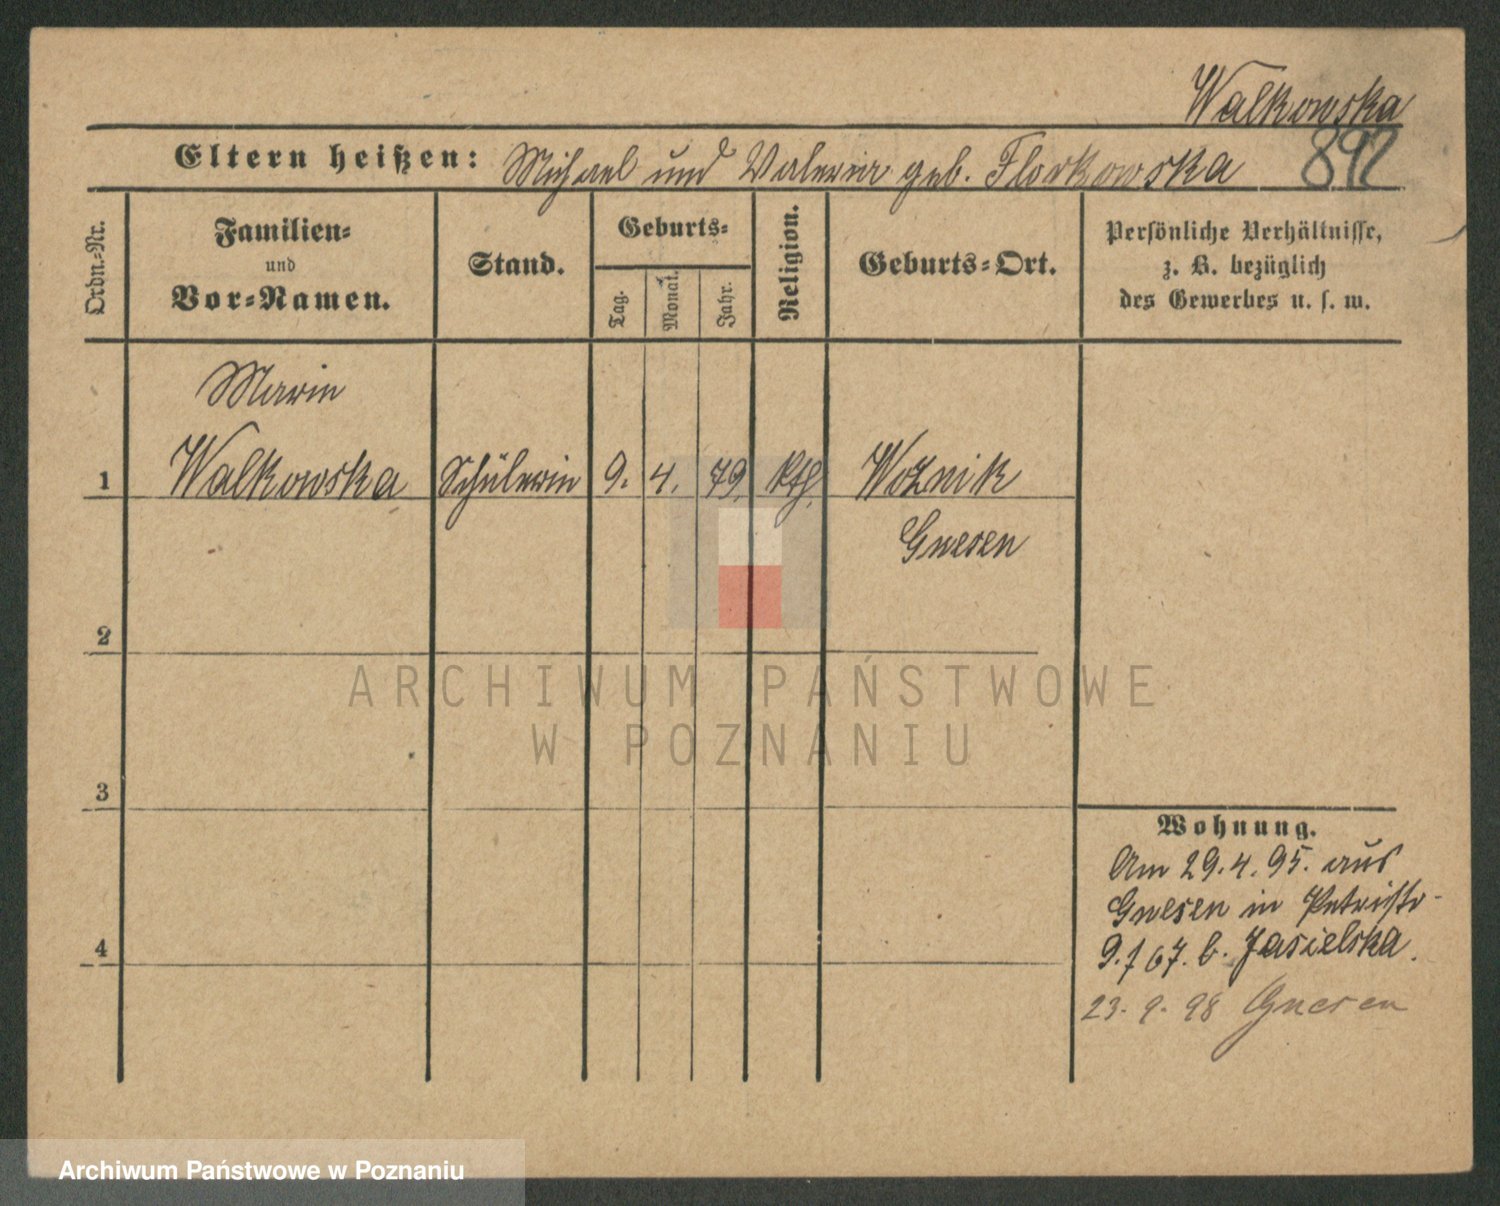 Walkowska
892
Eltern heißen: Michael und Valeria geb. Florkowska
Ordn.-Nr.
Familien-
und
Vor-Namen.
Stand.
Geburts-
Tag.
Monat.
Jahr.
Religion.
Geburts-Ort.
Persönliche Verhältnisse,
z. B. bezüglich
des Gewerbes u. s. w.
Marie
1 Walkowska Schülerin 9. 4. 79. kth. Woznik
Gnesen
2
3
4
Wohnung.
Am 29.4.95. aus
Gnesen in Petristr-
9. f 67. b. Jasielska.
23. 9. 98 Gnesen
ARCHIWUM PAŃSTWOWE
W POZNANIU
Archiwum Państwowe w Poznaniu